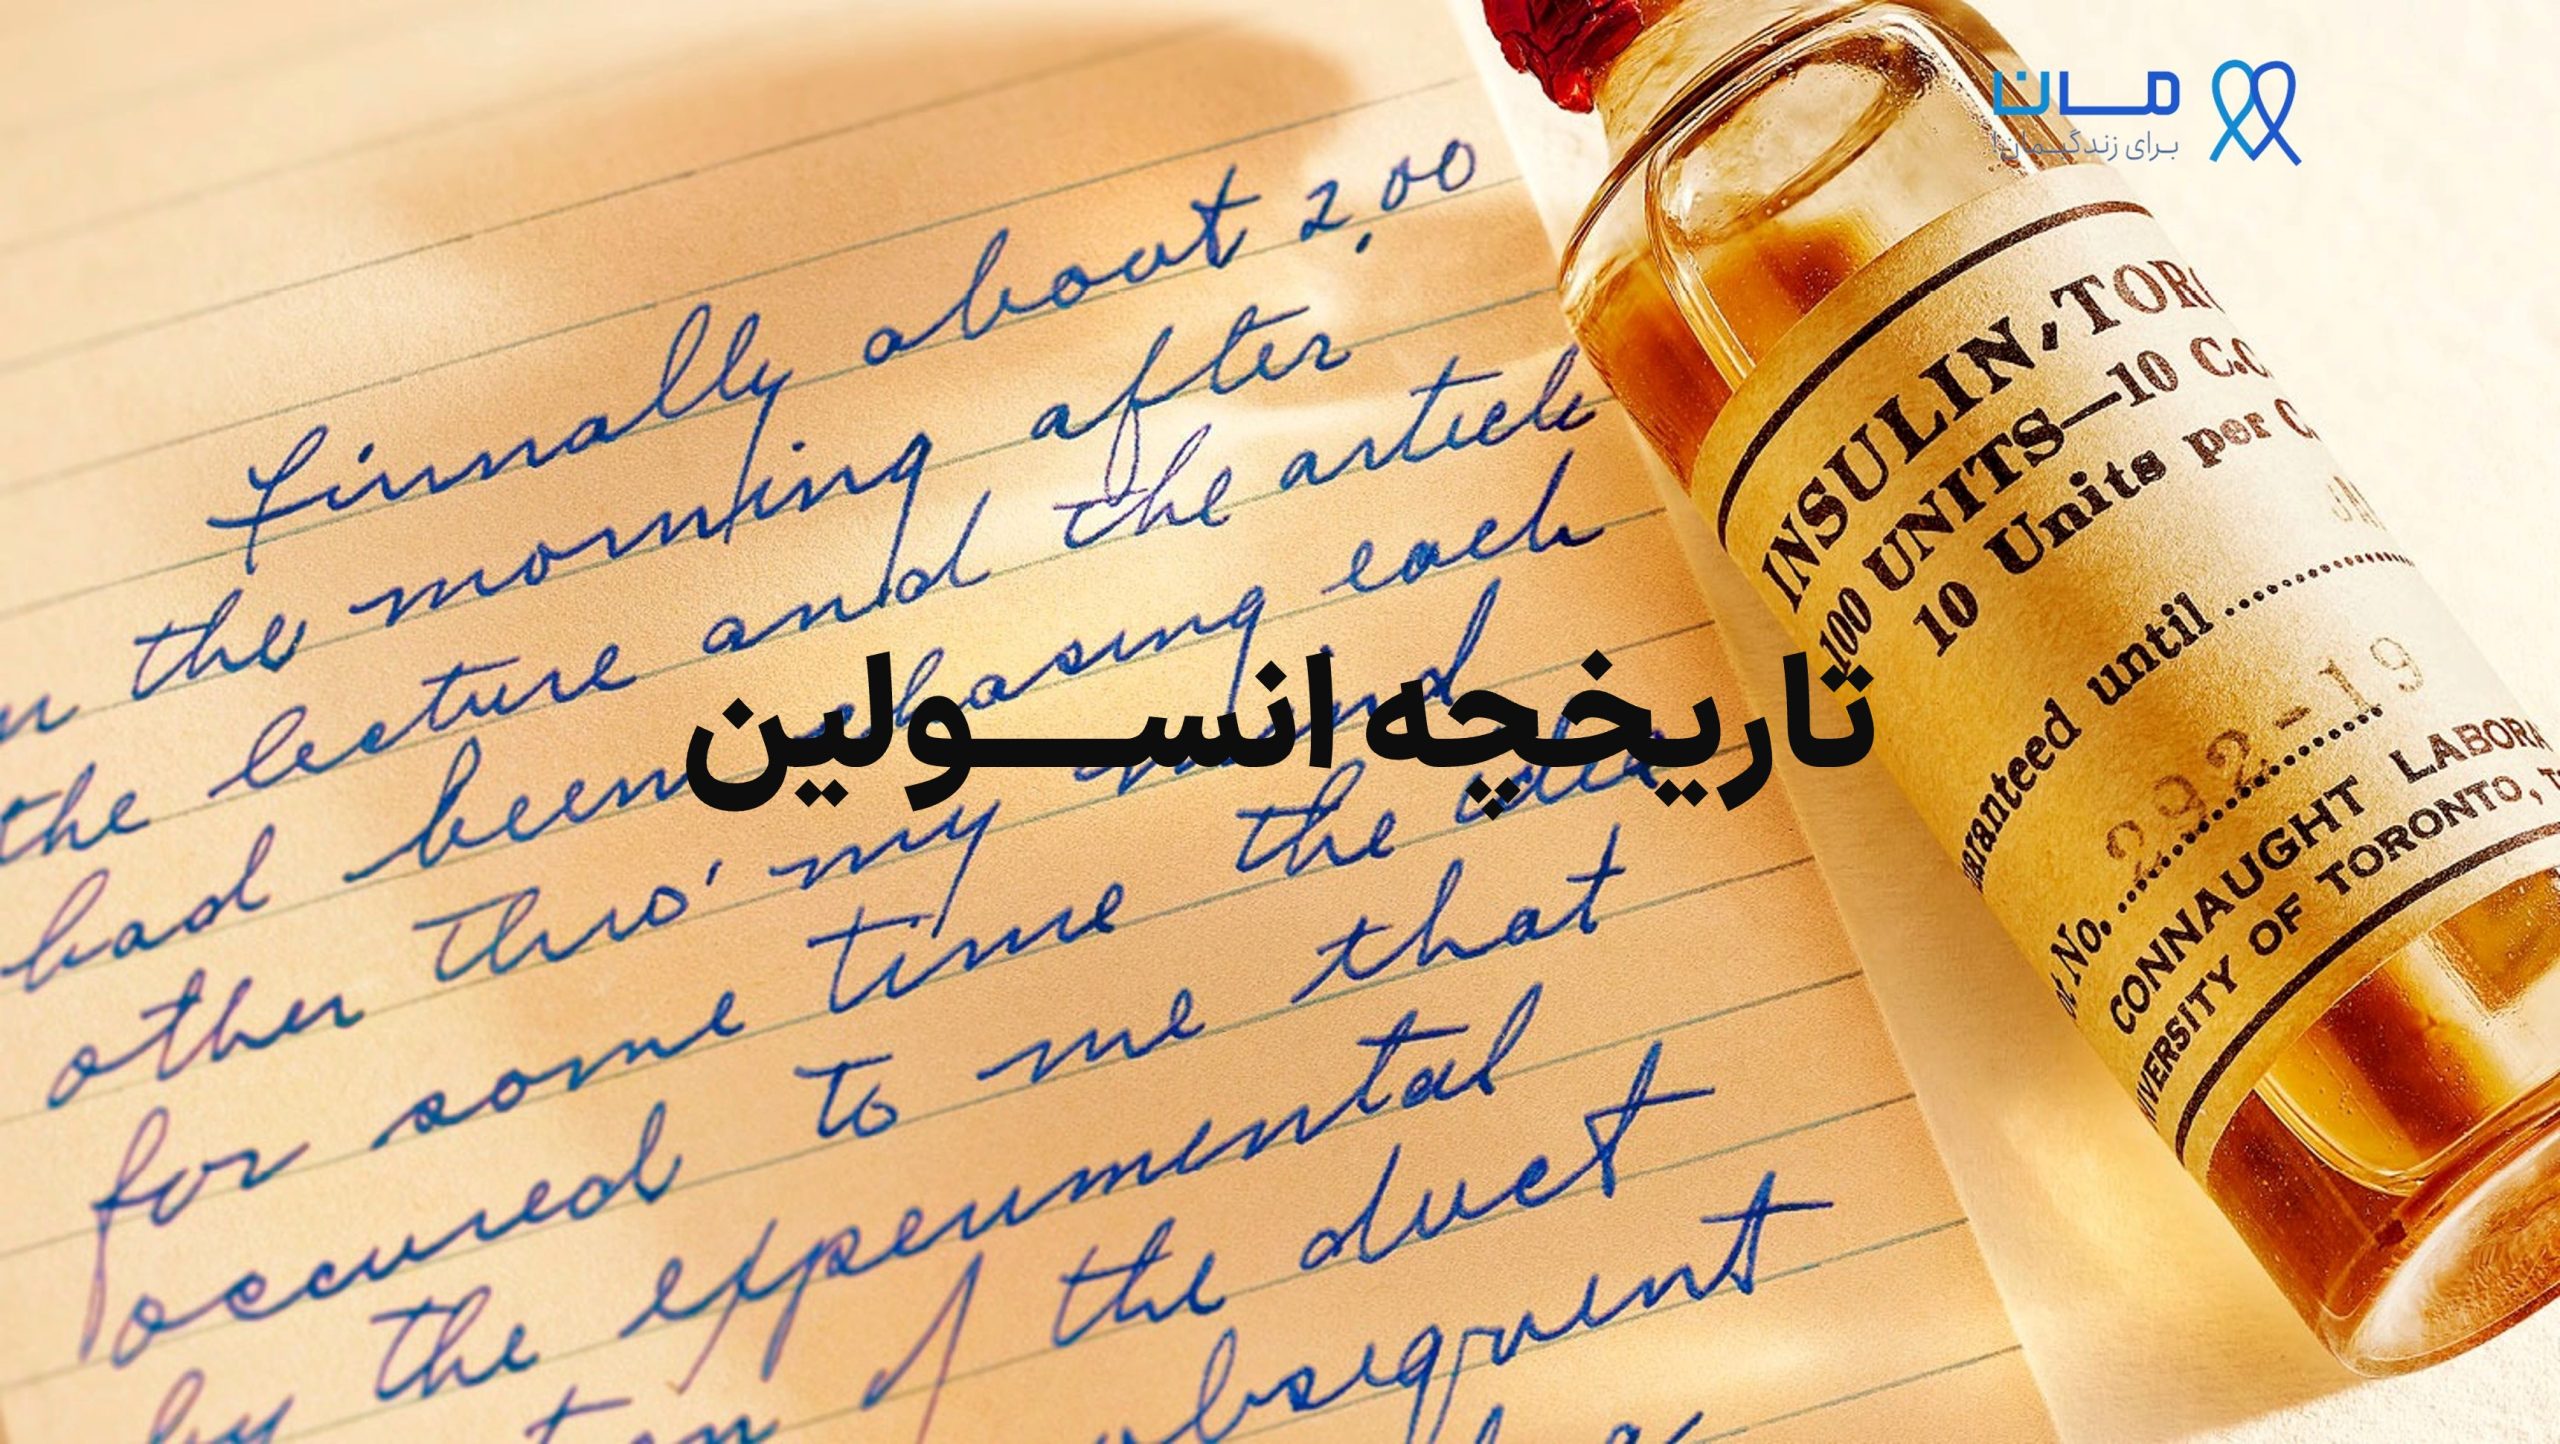 مانا
برای زندگیمان!
Finnally about 2.00
the morning after
the lecture and the article
had been chasing each
other thro' my mind
for some time the idea
occured to me that
by the experimental
of the duct
تاریخچه انسولین
INSULIN, TORO
100 UNITS—10 C.C.
10 Units per C.
until
292-19
No.
CONNAUGHT LABORA
UNIVERSITY OF TORONTO,